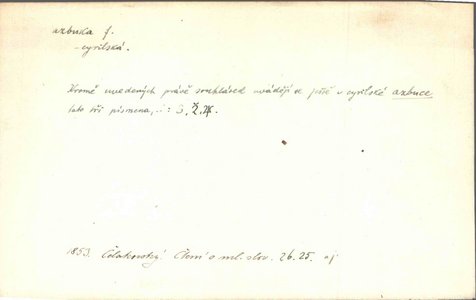 azbuka f.
- cyrilská.
Kromě uvedených právě souhlásek uvádějí se ještě v cyrilské azbuce
tato tři písmena, :
1853. Čelakovský: Čtení o ml. slov. 26.25.